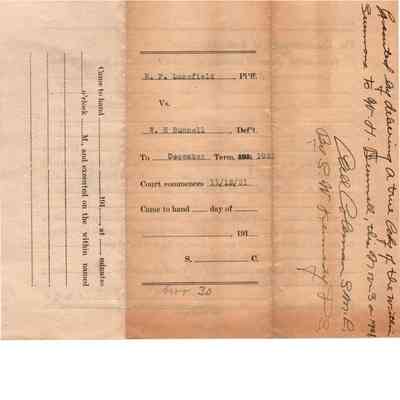 Came to hand 191 , at minutes
o'clock M., and executed on the within named
R. F. Lunsfield , Pl'ff.
Vs.
W. H Bunnell , Def't.
To December Term, 191 192
Court commences 11/12/21
Came to hand day of
, 191
S. C.
Nov 30
Executed by delivering a true Copy of the within
Summons to W. H. Bunnell, this Nov 30 1921
Coleman
By S. W.